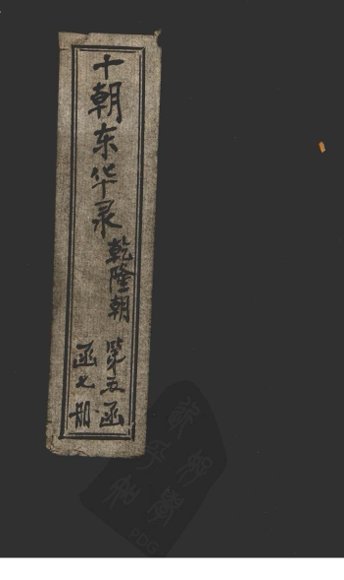 十朝东华录
乾隆朝
第五函
函七册
PDG